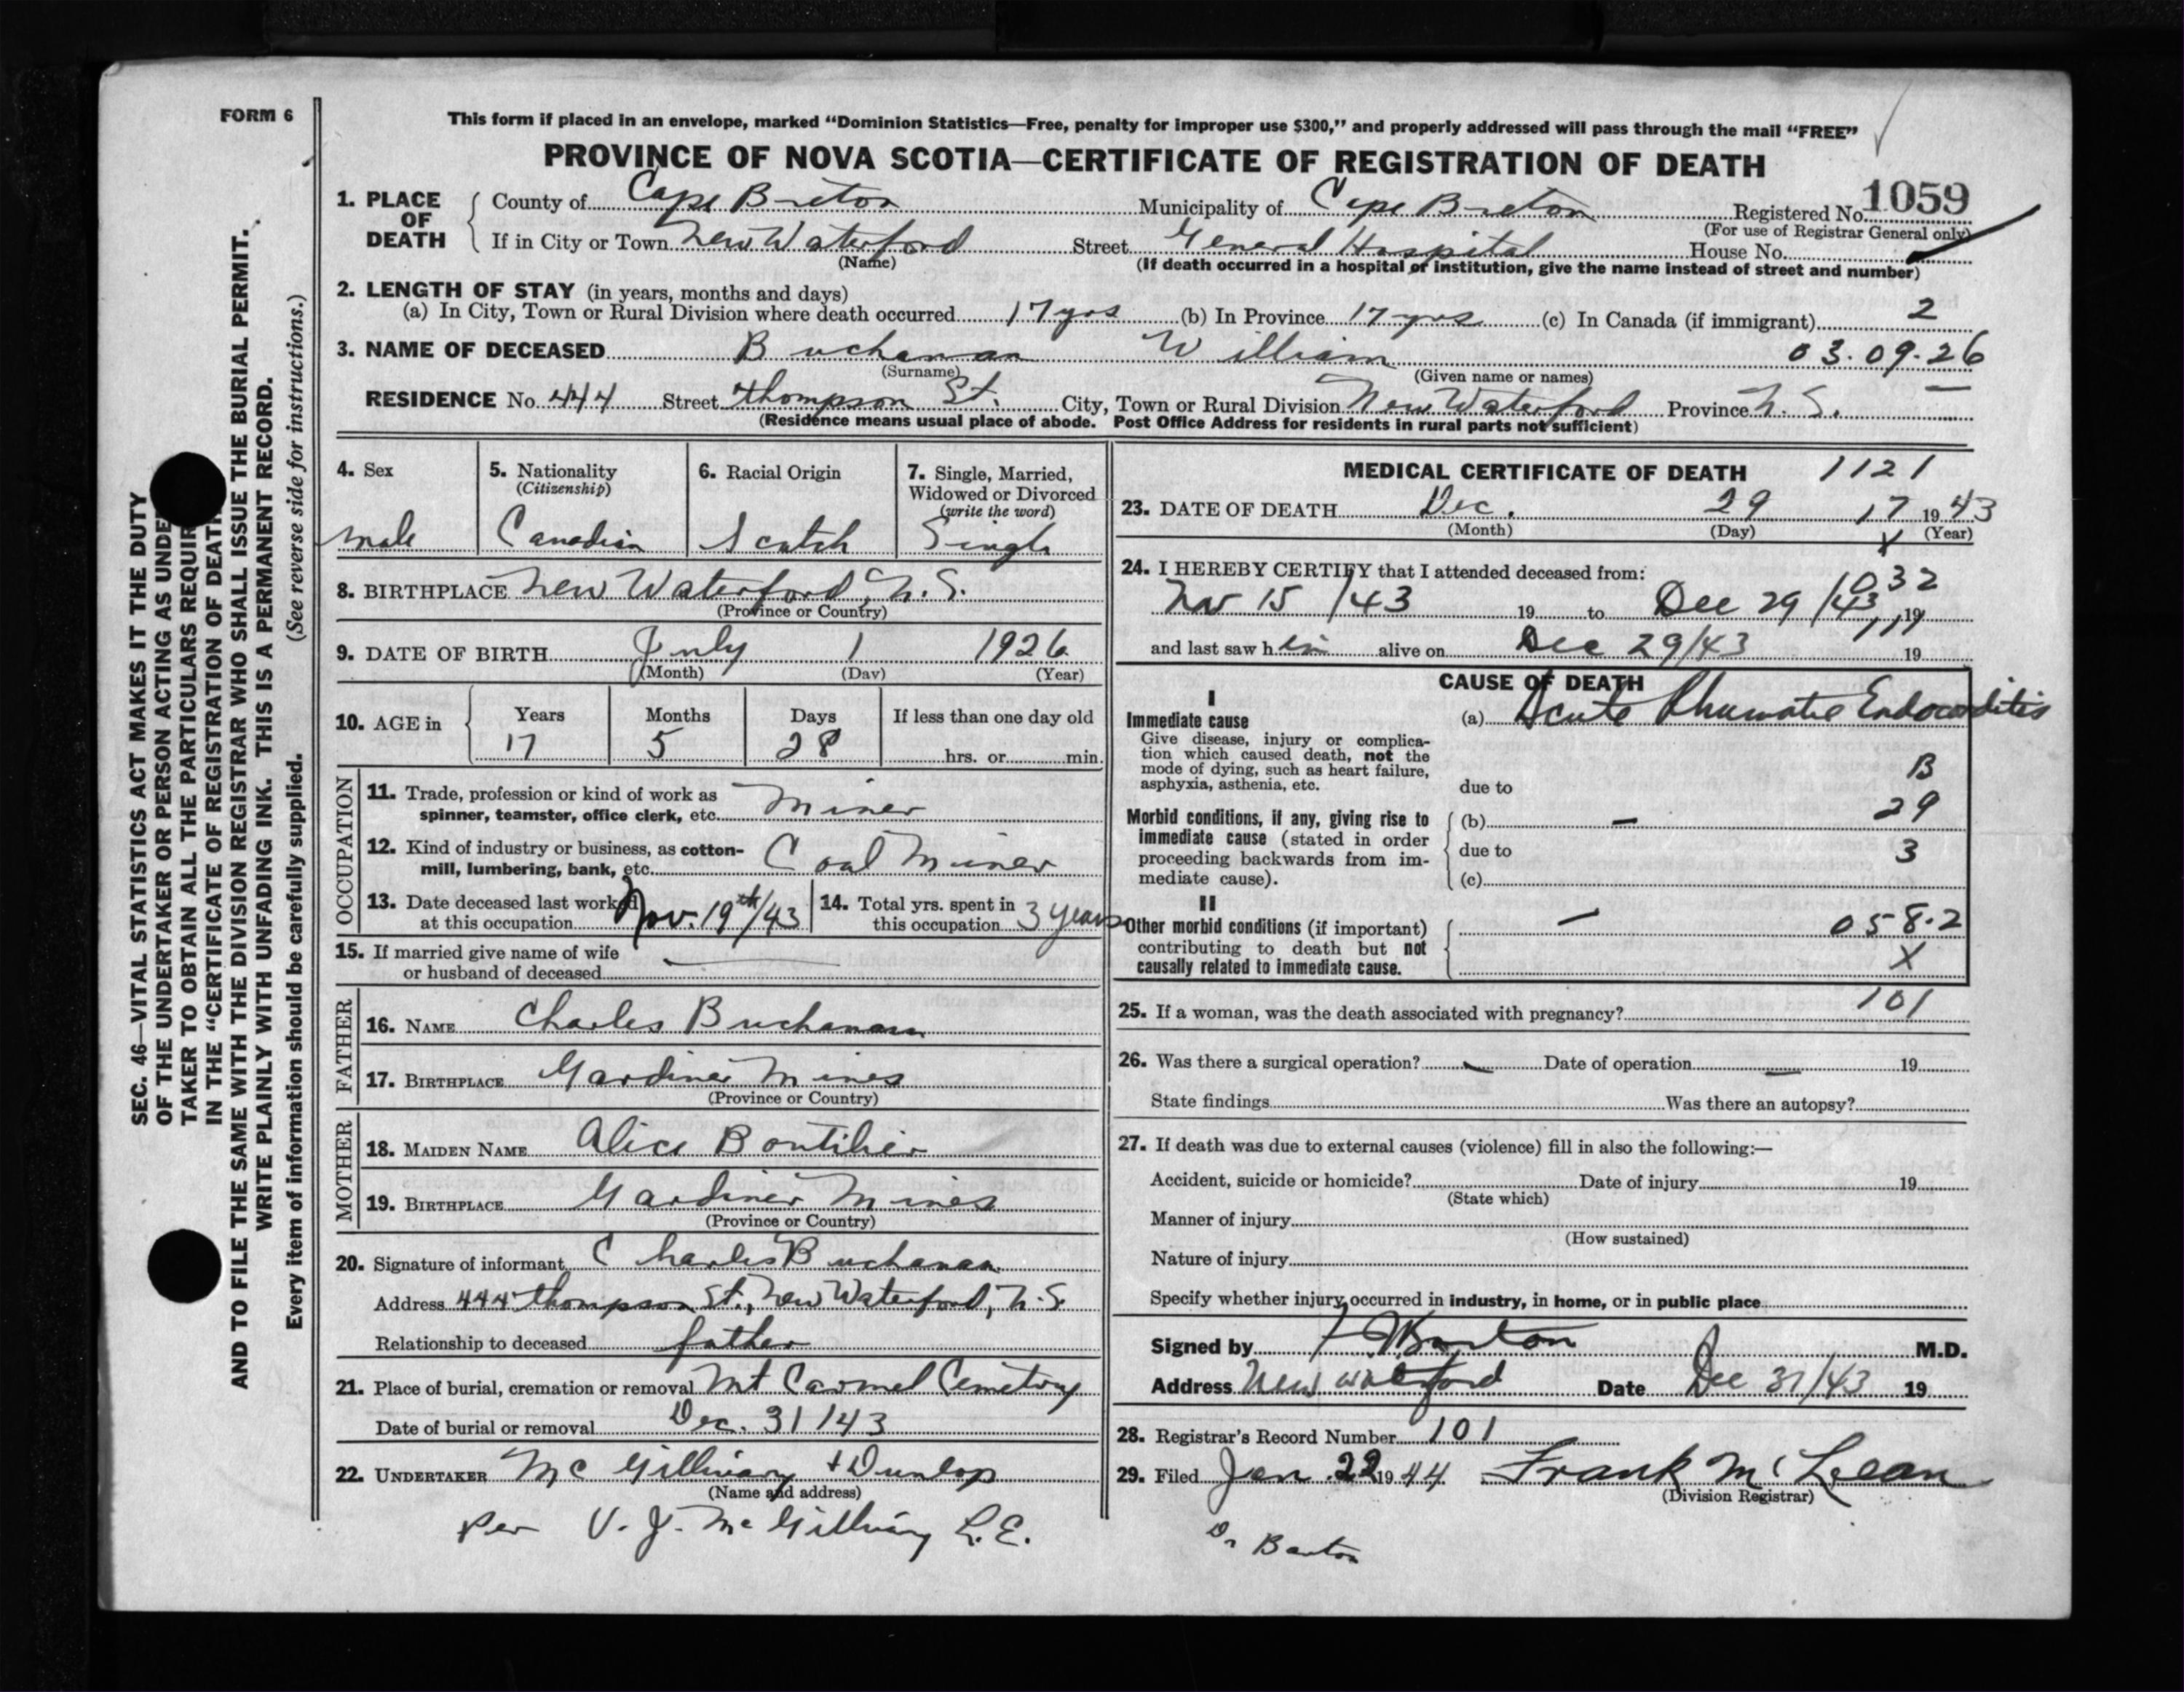 FORM 6
This form if placed in an envelope, marked “Dominion Statistics—Free, penalty for improper use $300,” and properly addressed will pass through the mail “FREE”
PROVINCE OF NOVA SCOTIA—CERTIFICATE OF REGISTRATION OF DEATH
1059
1. PLACE OF DEATH County of Cape Breton Municipality of Cape Breton Registered No.
(For use of Registrar General only)
If in City or Town New Waterford Street General Hospital House No.
(Name) (If death occurred in a hospital or institution, give the name instead of street and number)
2. LENGTH OF STAY (in years, months and days)
(a) In City, Town or Rural Division where death occurred 17 yrs (b) In Province 17 yrs (c) In Canada (if immigrant) 2
3. NAME OF DECEASED Buchanan William 03.09.26
(Surname) (Given name or names)
RESIDENCE No. 444 Street Thompson St. City, Town or Rural Division New Waterford Province N. S.
(Residence means usual place of abode. Post Office Address for residents in rural parts not sufficient)
4. Sex
male
5. Nationality
(Citizenship)
Canadian
6. Racial Origin
Scotch
7. Single, Married,
Widowed or Divorced
(write the word)
Single
8. BIRTHPLACE New Waterford, N. S.
(Province or Country)
9. DATE OF BIRTH July 1 1926
(Month) (Day) (Year)
10. AGE in Years Months Days If less than one day old
17 5 28 hrs. or min.
OCCUPATION
11. Trade, profession or kind of work as
spinner, teamster, office clerk, etc. Miner
12. Kind of industry or business, as cotton-
mill, lumbering, bank, etc. Coal Miner
13. Date deceased last worked
at this occupation Nov. 19th/43
14. Total yrs. spent in
this occupation 3 years
15. If married give name of wife
or husband of deceased
FATHER
16. NAME Charles Buchanan
17. BIRTHPLACE Gardiner Mines
(Province or Country)
MOTHER
18. MAIDEN NAME Alice Boutilier
19. BIRTHPLACE Gardiner Mines
(Province or Country)
20. Signature of informant Charles Buchanan
Address 444 Thompson St., New Waterford, N. S.
Relationship to deceased father
21. Place of burial, cremation or removal Mt Carmel Cemetery
Date of burial or removal Dec. 31/43
22. UNDERTAKER McGillivary + Dunlop
(Name and address)
Per V. J. McGillivary L. E.
MEDICAL CERTIFICATE OF DEATH 1121
23. DATE OF DEATH Dec. 29 17 1943
(Month) (Day) (Year)
X
24. I HEREBY CERTIFY that I attended deceased from:
032
Nov 15/43 19 to Dec 29/43 19
111
and last saw him alive on Dec 29/43 19
CAUSE OF DEATH
I
Immediate cause (a) Acute Rheumatic Endocarditis
Give disease, injury or complica-
tion which caused death, not the
mode of dying, such as heart failure,
asphyxia, asthenia, etc. due to B
Morbid conditions, if any, giving rise to (b) — 29
immediate cause (stated in order
proceeding backwards from im- due to 3
mediate cause). (c)
II
Other morbid conditions (if important) — 058.2
contributing to death but not
causally related to immediate cause. X
101
25. If a woman, was the death associated with pregnancy?
26. Was there a surgical operation? — Date of operation — 19
State findings Was there an autopsy?
27. If death was due to external causes (violence) fill in also the following:—
Accident, suicide or homicide? Date of injury 19
(State which)
Manner of injury
(How sustained)
Nature of injury
Specify whether injury occurred in industry, in home, or in public place
Signed by F Barton M.D.
Address New Waterford Date Dec 31/43 19
28. Registrar's Record Number 101
29. Filed Jan. 22 1944 Frank McLean
(Division Registrar)
Dr Barton
SEC. 46—VITAL STATISTICS ACT MAKES IT THE DUTY
OF THE UNDERTAKER OR PERSON ACTING AS UNDE
TAKER TO OBTAIN ALL THE PARTICULARS REQUIR
IN THE “CERTIFICATE OF REGISTRATION OF DEATH
AND TO FILE THE SAME WITH THE DIVISION REGISTRAR WHO SHALL ISSUE THE BURIAL PERMIT.
WRITE PLAINLY WITH UNFADING INK. THIS IS A PERMANENT RECORD.
Every item of information should be carefully supplied. (See reverse side for instructions.)